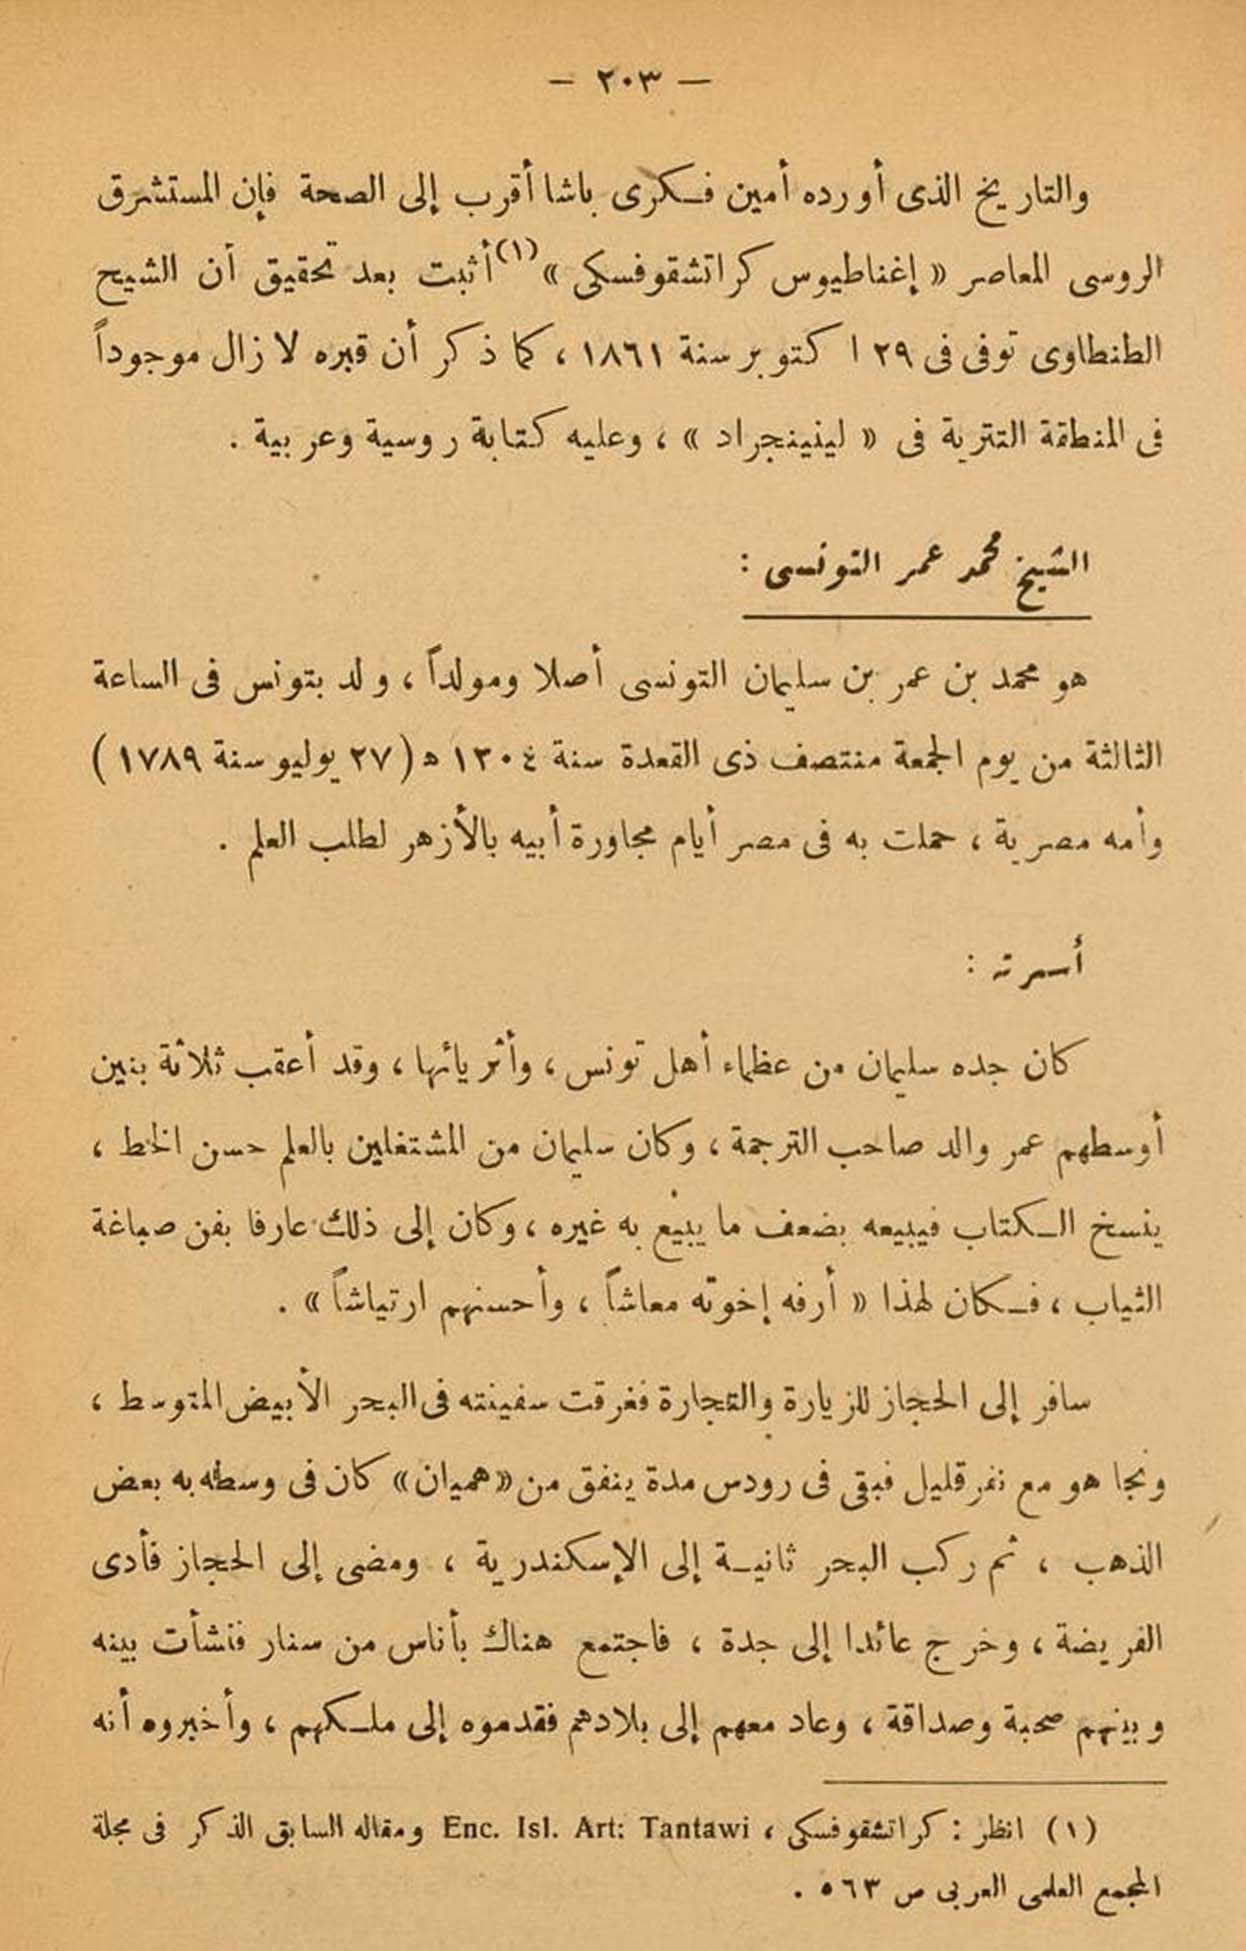 — ٢٠٣ —
والتاريخ الذى أورده أمين فكرى باشا أقرب إلى الصحة فإن المستشرق
الروسى المعاصر « إغناطيوس كراتشقوفسكى »(١) أثبت بعد تحقيق أن الشيخ
الطنطاوى توفى فى ٢٩ اكتوبر سنة ١٨٦١ ، كما ذكر أن قبره لا زال موجوداً
فى المنطقة التترية فى « لينينجراد » ، وعليه كتابة روسية وعربية .
الشيخ محمد عمر التونسى :
هو محمد بن عمر بن سليمان التونسى أصلا ومولداً ، ولد بتونس فى الساعة
الثالثة من يوم الجمعة منتصف ذى القعدة سنة ١٣٠٤ ه (٢٧ يوليو سنة ١٧٨٩)
وأمه مصرية ، حملت به فى مصر أيام مجاورة أبيه بالأزهر لطلب العلم .
أسرته :
كان جده سليمان من عظماء أهل تونس ، وأثريائها ، وقد أعقب ثلاثة بنين
أوسطهم عمر والد صاحب الترجمة ، وكان سليمان من المشتغلين بالعلم حسن الخط ،
ينسخ الكتاب فيبيعه بضعف ما يبيع به غيره ، وكان إلى ذلك عارفا بفن صباغة
الثياب ، فكان لهذا « أرفه إخوته معاشاً ، وأحسنهم ارتياشاً » .
سافر إلى الحجاز للزيارة والتجارة فغرقت سفينته فى البحر الأبيض المتوسط ،
ونجا هو مع نفر قليل فبقى فى رودس مدة ينفق من « هميان » كان فى وسطه به بعض
الذهب ، ثم ركب البحر ثانية إلى الإسكندرية ، ومضى إلى الحجاز فأدى
الفريضة ، وخرج عائدا إلى جدة ، فاجتمع هناك بأناس من سنار فنشأت بينه
وبينهم صحبة وصداقة ، وعاد معهم إلى بلادهم فقدموه إلى ملكهم ، وأخبروه أنه
(١) انظر : كراتشقوفسكى ، Enc. Isl. Art: Tantawi ومقاله السابق الذكر فى مجلة
المجمع العلمى العربى ص ٥٦٣ .